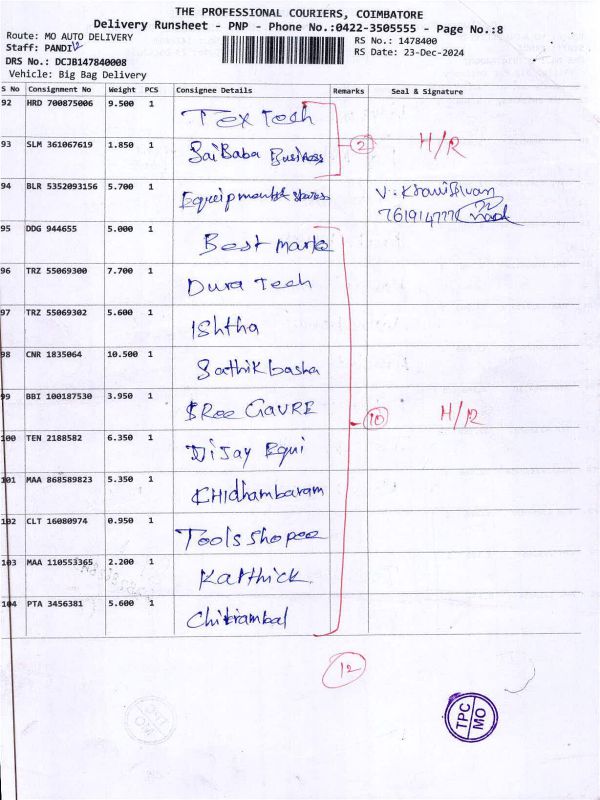 THE PROFESSIONAL COURIERS, COIMBATORE
Delivery Runsheet - PNP - Phone No.:0422-3505555 - Page No.:8
Route: MO AUTO DELIVERY
RS No.: 1478400
Staff: PANDI
RS Date: 23-Dec-2024
DRS No.: DCJB147840008
Vehicle: Big Bag Delivery
S No Consignment No Weight PCS Consignee Details Remarks Seal & Signature
92 HRD 700875006 9.500 1 Tex Tech
2 H/R
93 SLM 361067619 1.850 1 Sai Baba Business
94 BLR 5352093156 5.700 1 Equipment & spares
95 DDG 944655 5.000 1 Best mark
96 TRZ 55069300 7.700 1 Dura Tech
97 TRZ 55069302 5.600 1 Ishtha
98 CNR 1835064 10.500 1 Sathik basha
99 BBI 100187530 3.950 1 SRee GAVRE
10 H/R
100 TEN 2188582 6.350 1 Vijay Equi
101 MAA 868589823 5.350 1 CHIdhambaram
102 CLT 16080974 0.950 1 Tools shopee
103 MAA 110553365 2.200 1 Karthick
104 PTA 3456381 5.600 1 Chitrambal
12
TPC
MO